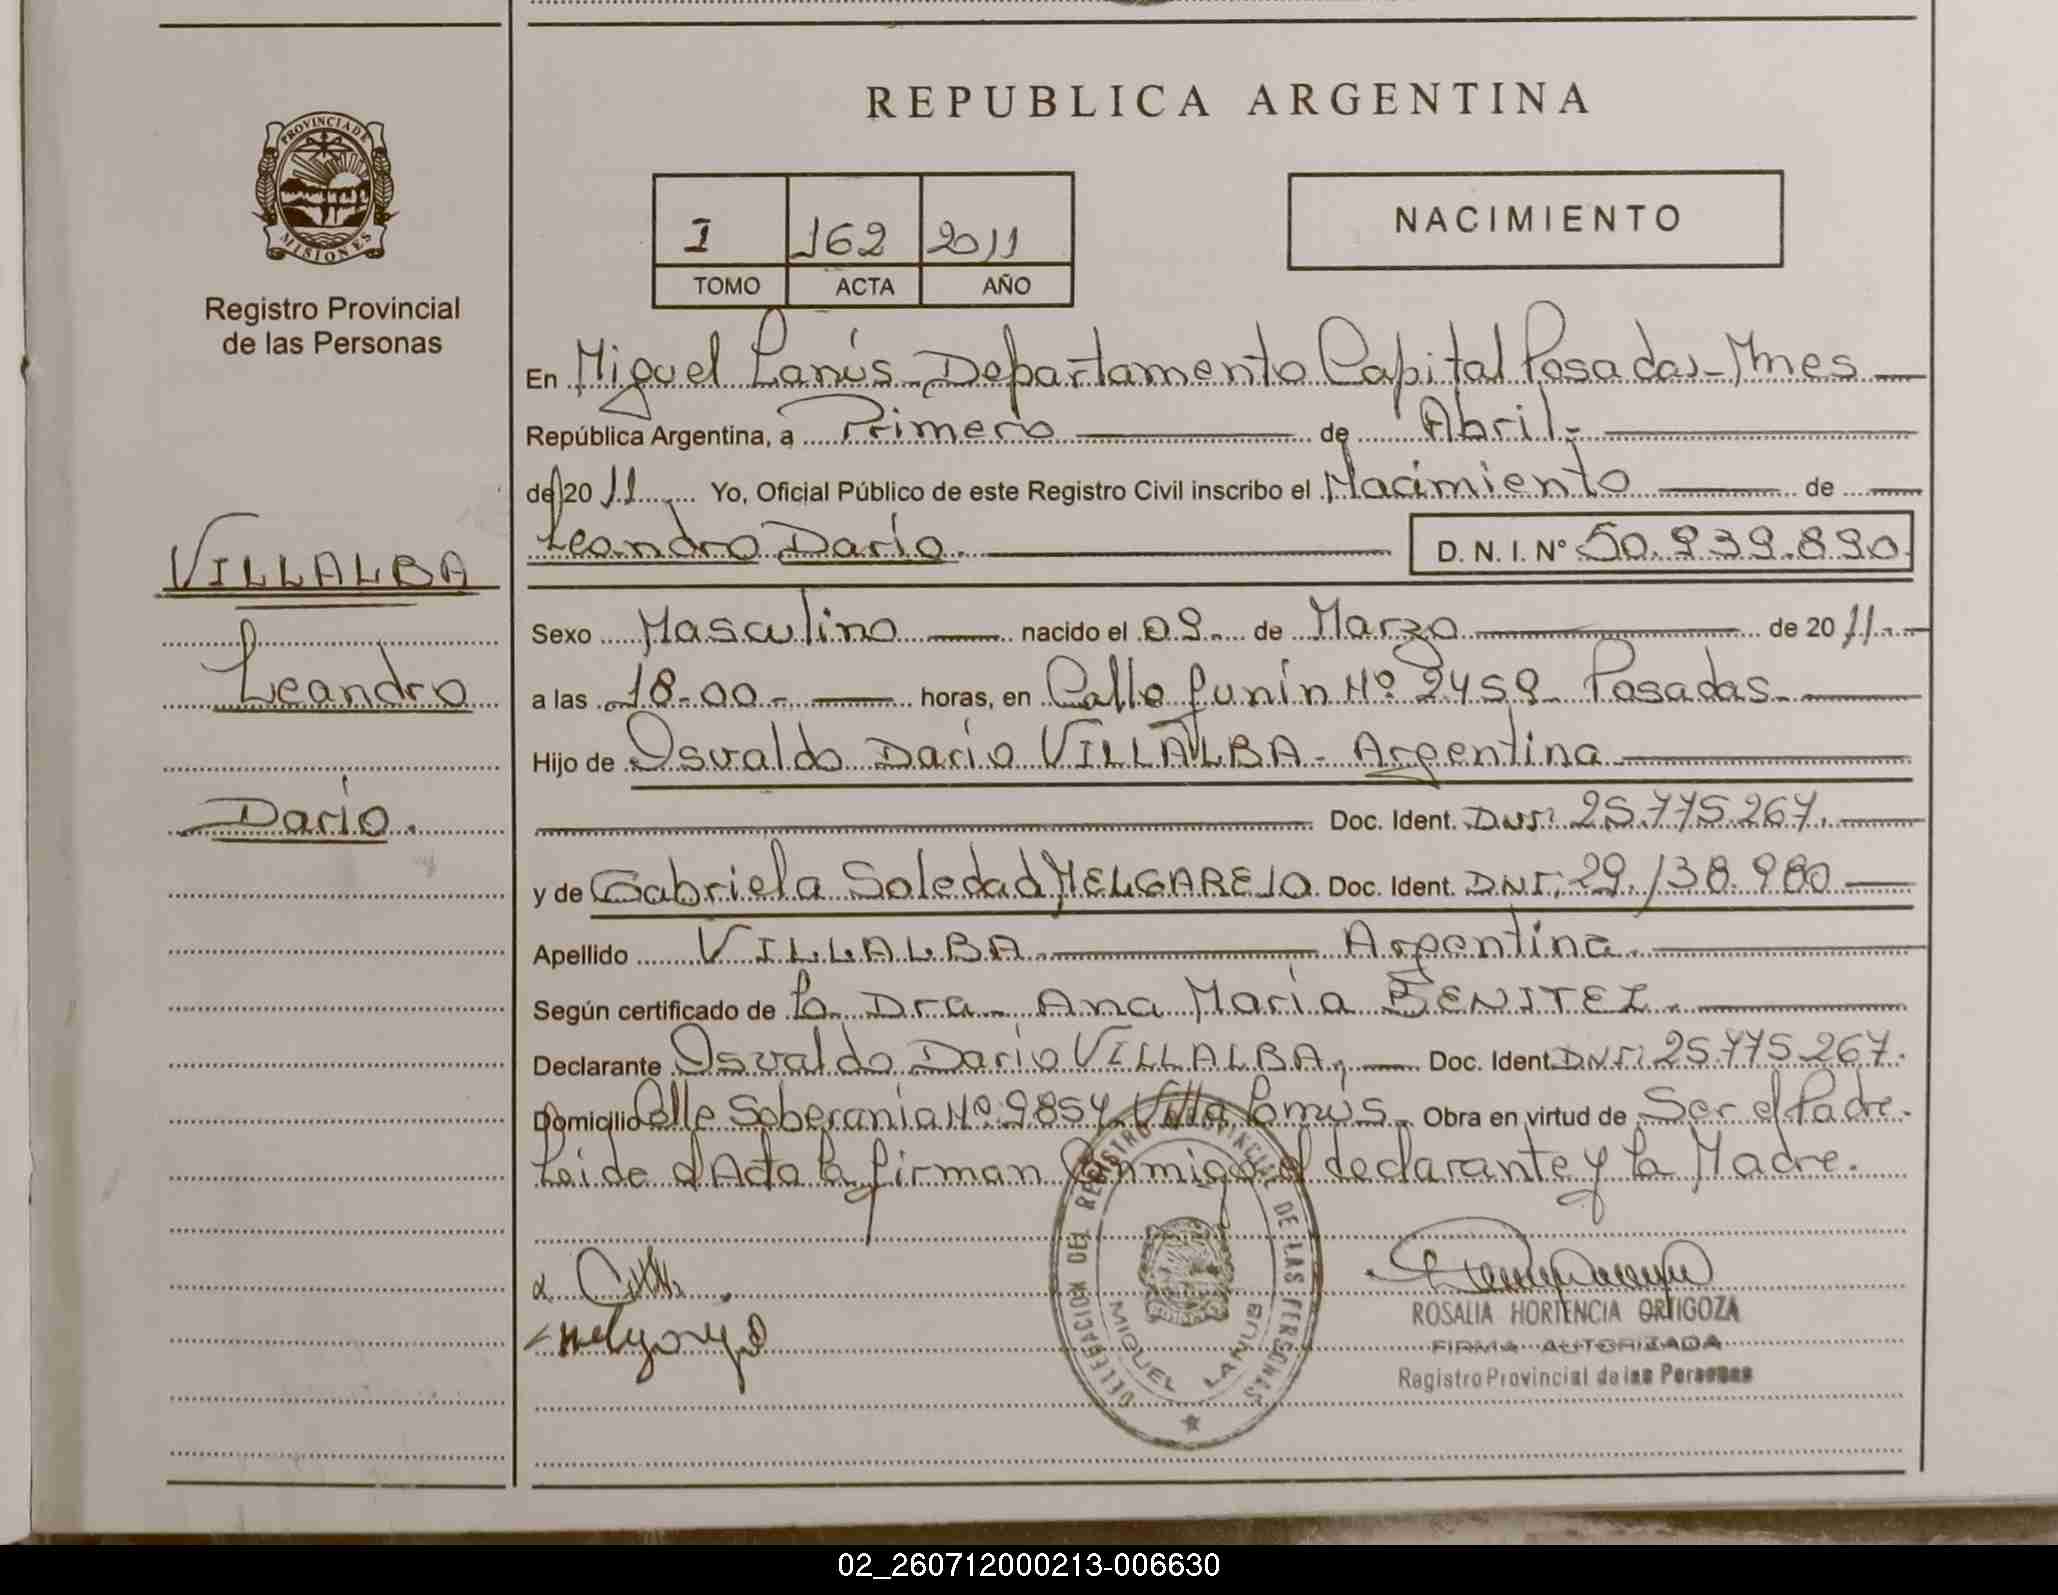 REPUBLICA ARGENTINA
PROVINCIA DE
MISIONES
Registro Provincial
de las Personas
NACIMIENTO
I 162 2011
TOMO ACTA AÑO
En Miguel Lanús Departamento Capital Posadas-Mnes
República Argentina, a Primero de Abril.-
de 2011 Yo, Oficial Público de este Registro Civil inscribo el Nacimiento de
Leandro Darío. D. N. I. Nº 50.939.890
VILLALBA
Leandro
Darío.
Sexo Masculino nacido el 09 de Marzo de 2011.-
a las 18-00- horas, en Calle Junín Nº 2459 Posadas-
Hijo de Osvaldo Darío VILLALBA - Argentina
Doc. Ident. DNI: 25.775.267.
y de Gabriela Soledad MELGAREJO Doc. Ident. DNI: 29.138.980
Apellido VILLALBA Argentina.
Según certificado de La Dra- Ana María BENITEZ.
Declarante Osvaldo Darío VILLALBA, Doc. Ident. DNI: 25.775.267.
Domicilio Calle Soberanía Nº 9854 Villa Lanús- Obra en virtud de Ser el Padre.
Leída el Acta la firman Conmigo el declarante y la Madre.
DELEGACION DEL REGISTRO PROVINCIAL DE LAS PERSONAS
MIGUEL LANUS
ROSALIA HORTENCIA ORTIGOZA
FIRMA AUTORIZADA
Registro Provincial de las Personas
02_260712000213-006630